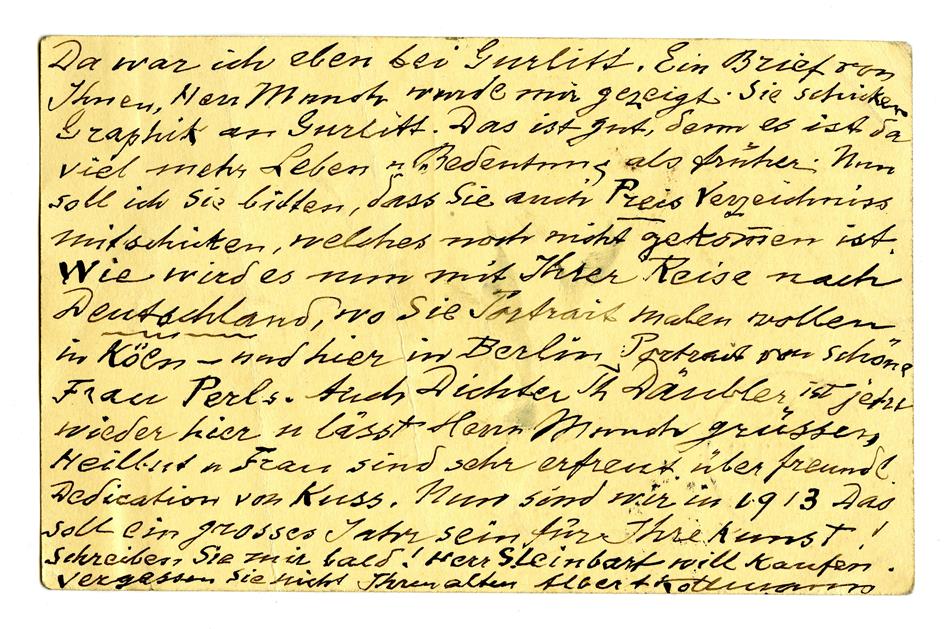 Da war ich eben bei Gurlitt. Ein Brief von
Ihnen, Herr Munch wurde mir gezeigt. Sie schicken
Graphik an Gurlitt. Das ist gut, denn es ist da
viel mehr Leben u. Bedeutung als früher. Nun
soll ich Sie bitten, dass Sie auch Preis Verzeichniss
mitschicken, welches noch nicht gekom̅en ist.
Wie wird es nun mit Ihrer Reise nach
Deutschland, wo Sie Portrait malen wollen
in Köln – und hier in Berlin Portrait von schöne
Frau Perls. Auch Dichter Th Däubler ist jetzt
wieder hier u lässt Herrn Munch grüssen,
Heilbut u Frau sind sehr erfreut über freundl.
Dedication von Kuss. Nun sind wir in 1913 Das
soll ein grosses Jahr sein für Ihre Kunst!
Schreiben Sie mir bald! Herr Steinbart will kaufen.
Vergessen Sie nicht Ihren alten Albert Kollmann